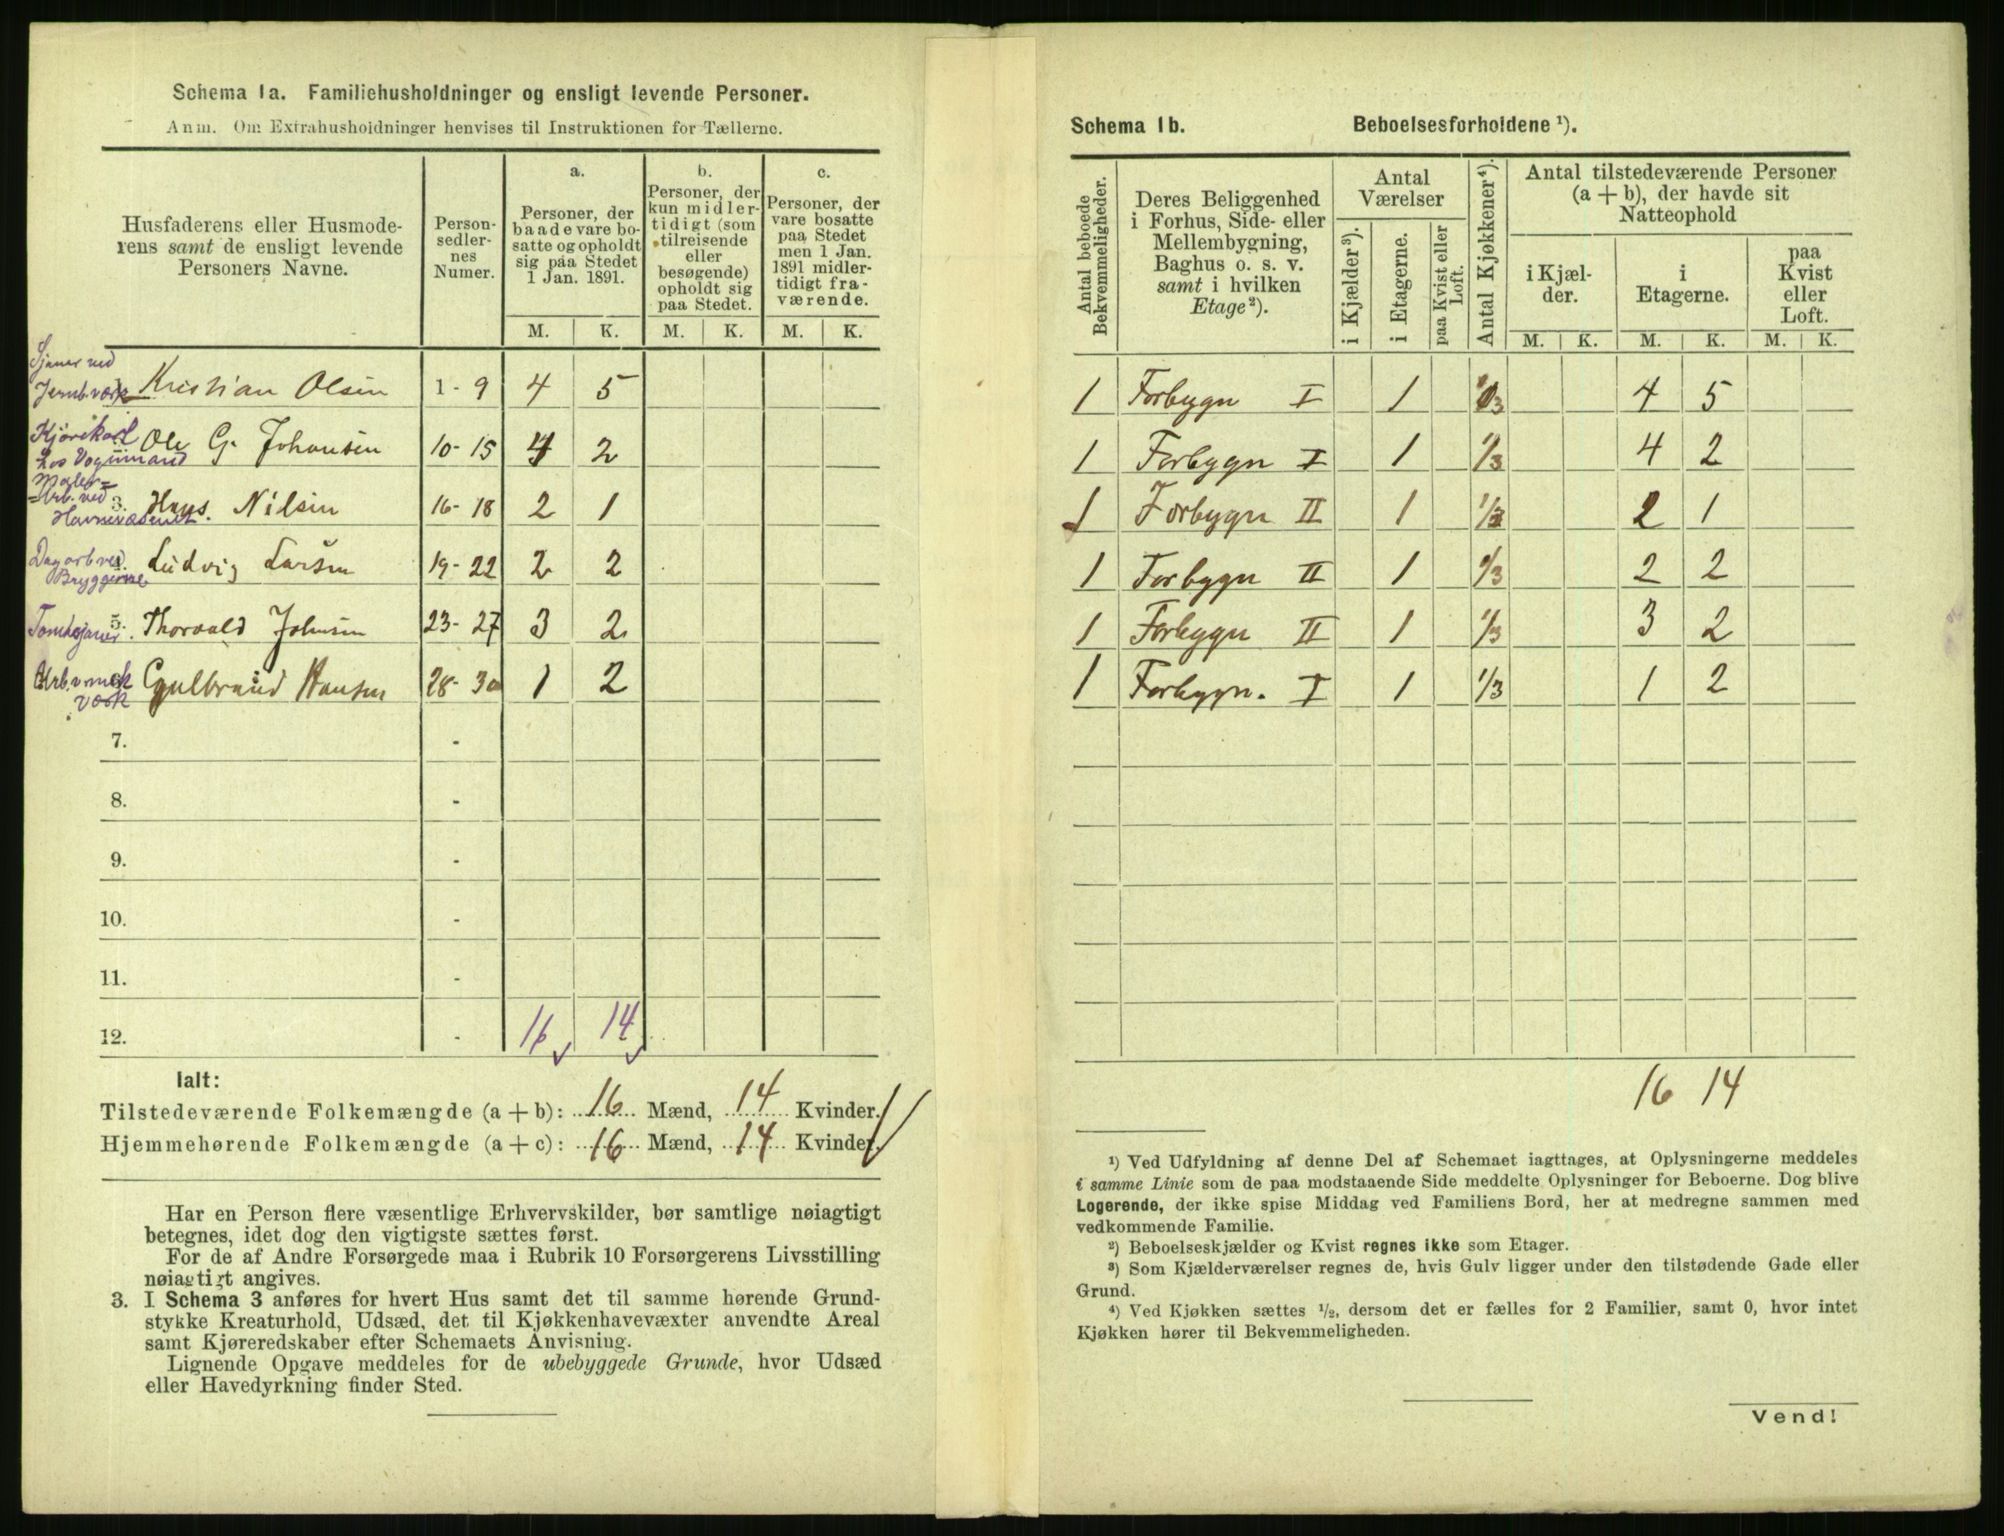 Schema 1a. Familiehusholdninger og ensligt levende Personer.
Anm. Om Extrahusholdninger henvises til Instruktionen for Tællerne.
Husfaderens eller Husmoderens samt de ensligt levende Personers Navne.
Personsedlernes Numer.
a.
Personer, der baade vare bosatte og opholdt sig paa Stedet 1 Jan. 1891.
b.
Personer, der kun midlertidigt (som tilreisende eller besøgende) opholdt sig paa Stedet.
c.
Personer, der vare bosatte paa Stedet men 1 Jan. 1891 midlertidigt fraværende.
M. K. M. K. M. K.
Kristian Olsen 1 - 9 4 5
Kjørekarl
Ole G. Johansen 10 - 15 4 2
Arb. ved
Havnevæsenet.
3. Hans Nilsen 16 - 18 2 1
Dagarb ved
Bryggerne
Ludvig Larsen 19 - 22 2 2
5. Thorvald Johnsen 23 - 27 3 2
Arb. v mek
værk
Gulbrand Hansen 28 - 30 1 2
7. -
8. -
9. -
10. -
11. -
12. - 16 14
Ialt:
Tilstedeværende Folkemængde (a + b): 16 Mænd, 14 Kvinder.
Hjemmehørende Folkemængde (a + c): 16 Mænd, 14 Kvinder.
Har en Person flere væsentlige Erhvervskilder, bør samtlige nøiagtigt
betegnes, idet dog den vigtigste sættes først.
For de af Andre Forsørgede maa i Rubrik 10 Forsørgerens Livsstilling
nøiagtigt angives.
3. I Schema 3 anføres for hvert Hus samt det til samme hørende Grund-
stykke Kreaturhold, Udsæd, det til Kjøkkenhavevæxter anvendte Areal
samt Kjøreredskaber efter Schemaets Anvisning.
Lignende Opgave meddeles for de ubebyggede Grunde, hvor Udsæd
eller Havedyrkning finder Sted.
Schema 1b. Beboelsesforholdene ¹).
Antal beboede Bekvemmeligheder.
Deres Beliggenhed i Forhus, Side- eller Mellembygning, Baghus o. s. v. samt i hvilken Etage ²).
Antal Værelser
i Kjælder ³).
i Etagerne.
paa Kvist eller Loft.
Antal Kjøkkener ⁴).
Antal tilstedeværende Personer (a + b), der havde sit Natteophold
i Kjælder.
i Etagerne.
paa Kvist eller Loft.
M. K. M. K. M. K.
1 Forbygn I 1 1/3 4 5
1 Forbygn I 1 1/3 4 2
1 Forbygn II 1 1/3 2 1
1 Forbygn II 1 1/3 2 2
1 Forbygn II 1 1/3 3 2
1 Forbygn. I 1 1/3 1 2
16 14
¹) Ved Udfyldning af denne Del af Schemaet iagttages, at Oplysningerne meddeles
i samme Linie som de paa modstaaende Side meddelte Oplysninger for Beboerne. Dog blive
Logerende, der ikke spise Middag ved Familiens Bord, her at medregne sammen med
vedkommende Familie.
²) Beboelseskjælder og Kvist regnes ikke som Etager.
³) Som Kjælderværelser regnes de, hvis Gulv ligger under den tilstødende Gade eller
Grund.
⁴) Ved Kjøkken sættes ½, dersom det er fælles for 2 Familier, samt 0, hvor intet
Kjøkken hører til Bekvemmeligheden.
Vend!